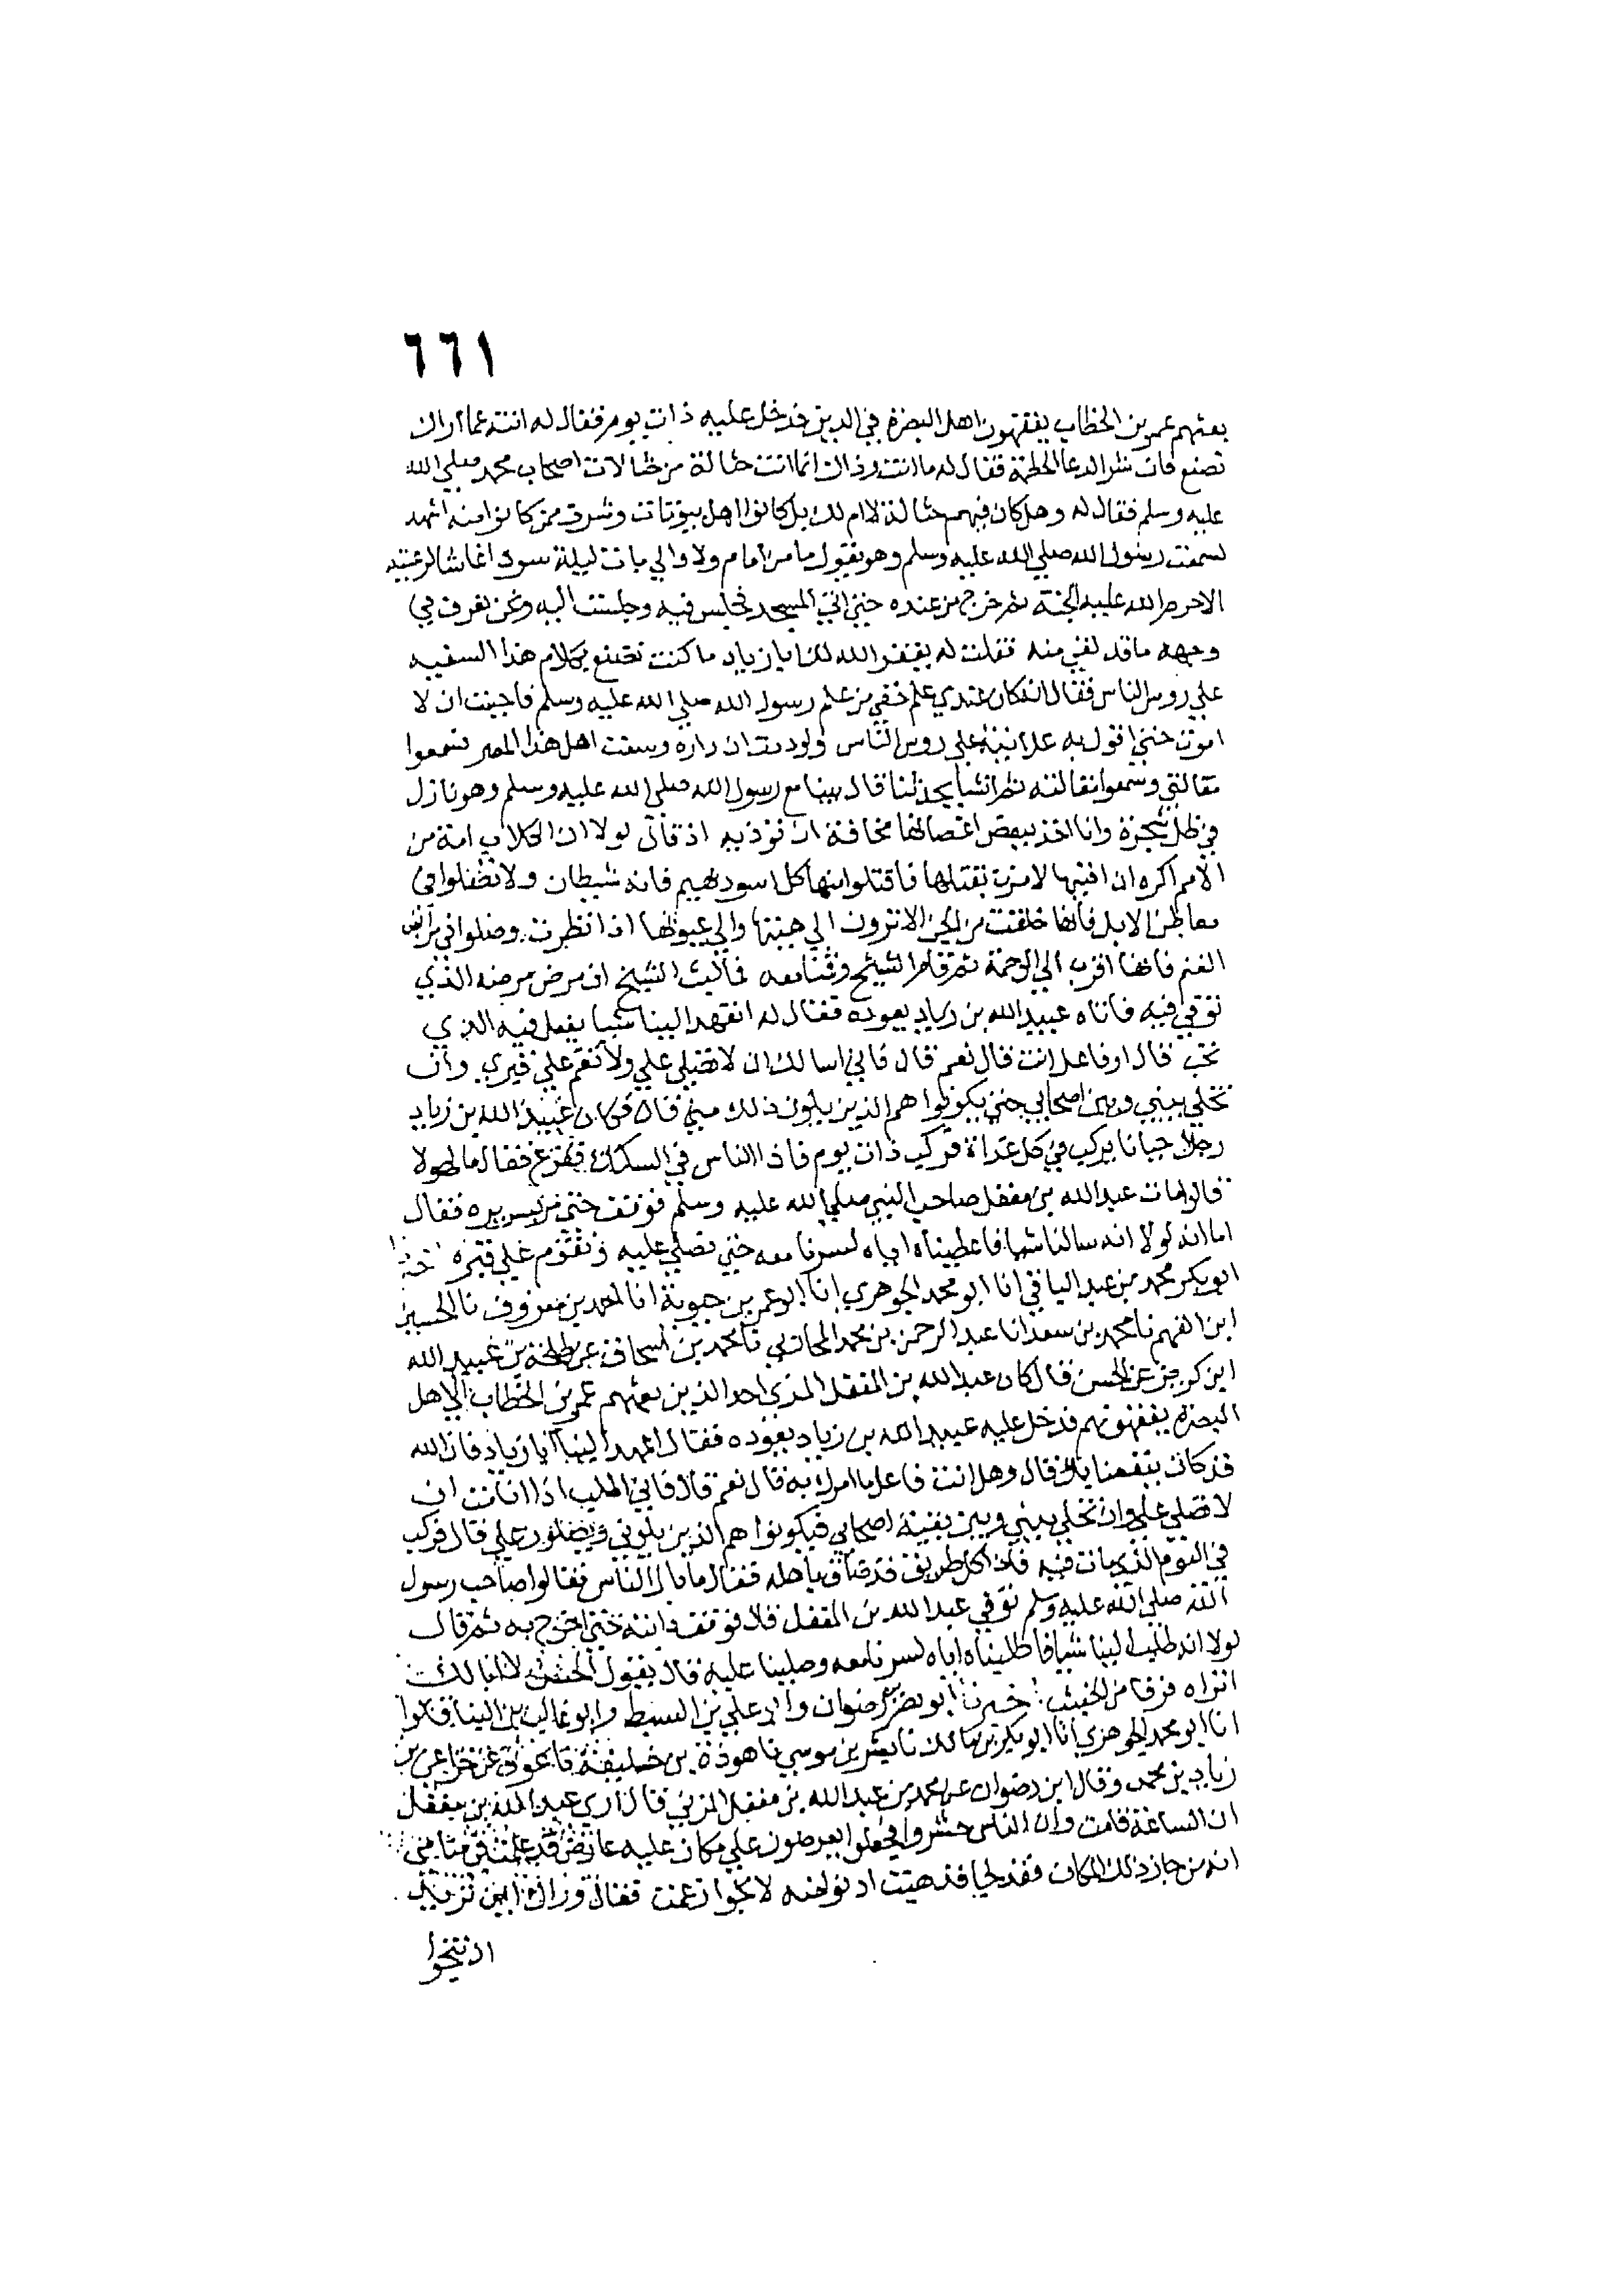 ٦٦١
بعثهم عمر بن الخطاب يفقهون اهل البصرة في الدين فدخل عليه ذات يوم فقال له انته عما اراك
تصنع فان شر الرعا الحطمة فقال له ما انت وذاك انما انت حثالة من حثالات اصحاب محمد صلي الله
عليه وسلم فقال له وهل كان فيهم حثالة لا ام لك بل كانوا اهل بيوتات وشرف ممن كانوا منه اشهد
لسمعت رسول الله صلي الله عليه وسلم وهو يقول ما من امام ولا والي بات ليلة سودا غاشا لرعيته
الا حرم الله عليه الجنة ثم خرج من عنده حتي اتي المسجد فجلس فيه وجلست اليه ونحن نعرف في
وجهه ما قد لقي منه فقلت له يغفر الله لك ابا زياد ما كنت تصنع بكلام هذا السفيه
علي روس الناس فقال انه كان عندي علم خفي من علم رسول الله صلي الله عليه وسلم فاحببت ان لا
اموت حتي اقول به علانية علي روس الناس ولوددت ان داره وسعت اهل هذا المصر سمعوا
مقالتي وسمعوا مقالته ثم انشا يحدثنا قال بينا مع رسول الله صلي الله عليه وسلم وهو نازل
في ظل شجرة وانا اخذ ببعض اغصانها مخافة ان توذيه اذ قال لولا ان الكلاب امة من
الامم اكره ان افنيها لامرت بقتلها فاقتلوا منها كل اسود بهيم فانه شيطان ولا تصلوا في
معاطن الابل فانها خلقت من الجن الا ترون الي هيتها والي عيونها اذا نظرت وصلوا في مرابض
الغنم فانها اقرب الي الرحمة ثم قام الشيخ وقمنا معه فما لبث الشيخ ان مرض مرضه الذي
توفي فيه فاتاه عبيد الله بن زياد يعوده فقال له اتعهد الينا شيا يفعل فيه الذي
تحب قال اوفاعل انت قال نعم قال فاني اسالك ان لا تصلي علي ولا تقم علي قبري وان
تخلي بيني وبين اصحابي حتي يكونوا هم الذين يلون ذلك مني قال فكان عبيد الله بن زياد
رجلا جبانا يركب في كل غداة فركب ذات يوم فاذا الناس في السكك ففزع فقال ما لهولا
قالوا مات عبد الله بن مغفل صاحب النبي صلي الله عليه وسلم فوقف حتي مر بسريره فقال
اما انه لولا انه سالنا شيا فاعطيناه اياه لسرنا معه حتي نصلي عليه ونقوم علي قبره
ابو بكر محمد بن عبد الباقي انا ابو محمد الجوهري انا ابو عمر بن حيوية انا احمد بن معروف نا الحسين
ابن الفهم نا محمد بن سعد انا عبد الرحمن بن محمد المحاربي نا محمد بن اسحاق عن طلحة بن عبيد الله
ابن كريز عن الحسن قال كان عبد الله بن المغفل المزني احد الذين بعثهم عمر بن الخطاب الي اهل
البصرة يفقهونهم فدخل عليه عبيد الله بن زياد يعوده فقال اعهد الينا ابا زياد فان الله
قد كان ينفعنا بك قال وهل انت فاعل ما امرك به قال نعم قال فاني اطلب اذا انا مت ان
لا تصلي علي وان تخلي بيني وبين بقية اصحابي فيكونوا هم الذين يلوني ويصلون علي قال فركب
في اليوم الذي مات فيه فاذا كل طريق قد ضاق باهله فقال ما بال الناس فقالوا صاحب رسول
الله صلي الله عليه وسلم توفي عبد الله بن المغفل فوقف دابته حتي اخرج به ثم قال
لولا انه طلب الينا شيا فاطلبناه اياه لسرنا معه وصلينا عليه قال يقول الحسن لا ابا لك
اتراه فرقا من الخبيث ابو نصر بن رضوان وابو علي بن السبط وابو غالب بن البنا قالوا
انا ابو محمد الجوهري انا ابو بكر بن مالك نا بشر بن موسي نا هوذة بن خليفة نا عوف عن خزاعي بن
زياد بن محمد وقال ابن رضوان عن محمد بن عبد الله بن مغفل المزني قال اري عبد الله بن مغفل
ان الساعة قامت وان الناس حشروا فجعلوا يعرضون علي مكان عليه عارض قد علمت في منامي
انه من جاز ذلك المكان فقد نجا فذهبت ادنو لانجو فقال وراك اين تريد
اتنجوا